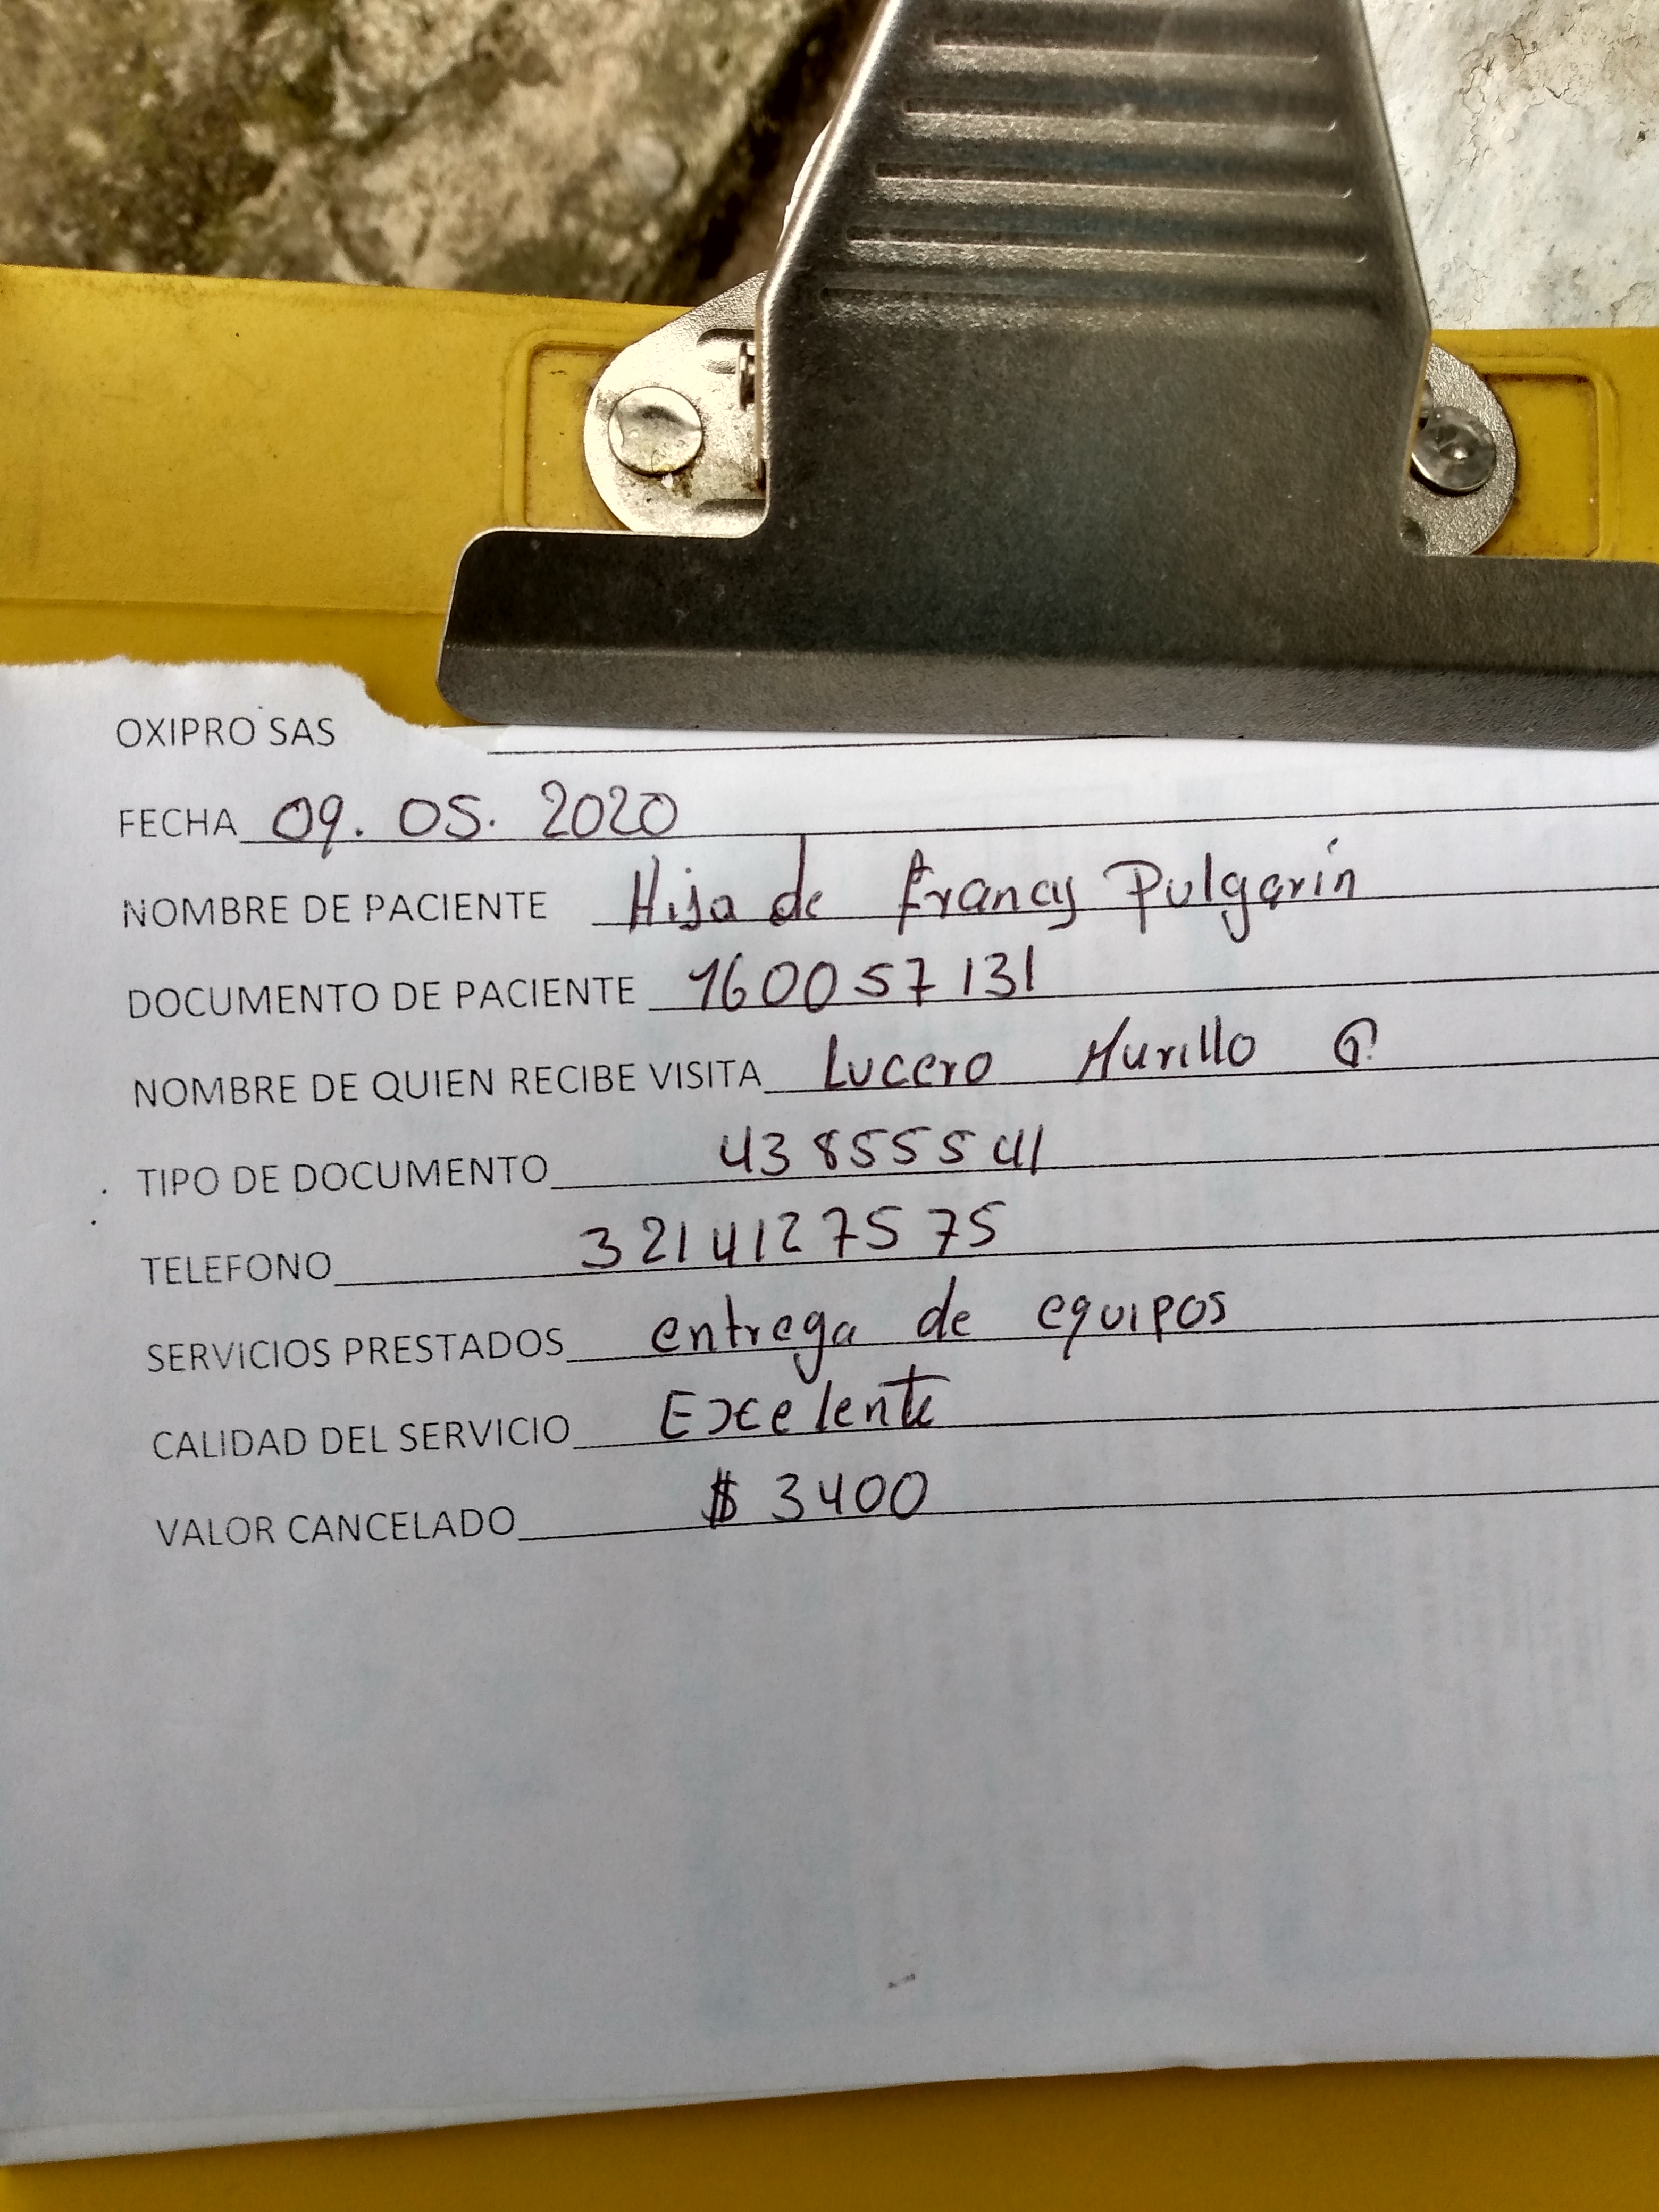 OXIPRO SAS
FECHA 09. 05. 2020
NOMBRE DE PACIENTE Hija de Francy Pulgarín
DOCUMENTO DE PACIENTE 160057131
NOMBRE DE QUIEN RECIBE VISITA Lucero Murillo G.
TIPO DE DOCUMENTO 43855541
TELEFONO 3214127575
SERVICIOS PRESTADOS entrega de equipos
CALIDAD DEL SERVICIO Excelente
VALOR CANCELADO $ 3400